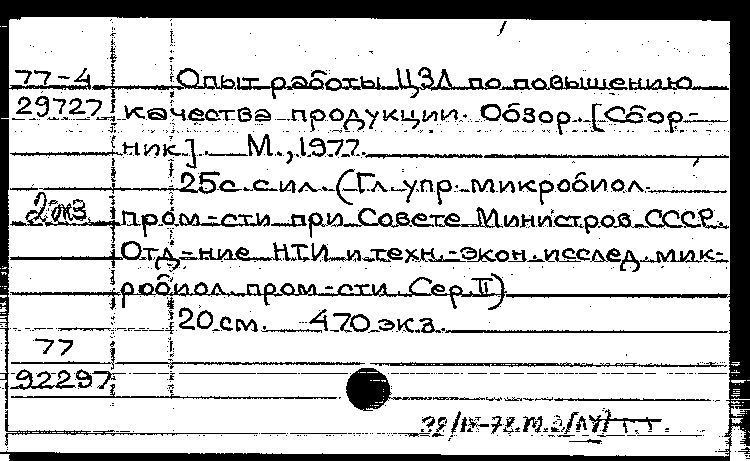 77-4 Опыт работы ЦЗЛ по повышению
29727 качества продукции. Обзор. [Сбор-
ник]. М., 1977.
25с. с ил. (Гл. упр. микробиол.
2 экз. пром-сти при Совете Министров СССР.
Отд-ние НТИ и техн.-экон. исслед. мик-
робиол. пром-сти. Сер. II)
20 см. 470 экз.
77
92297